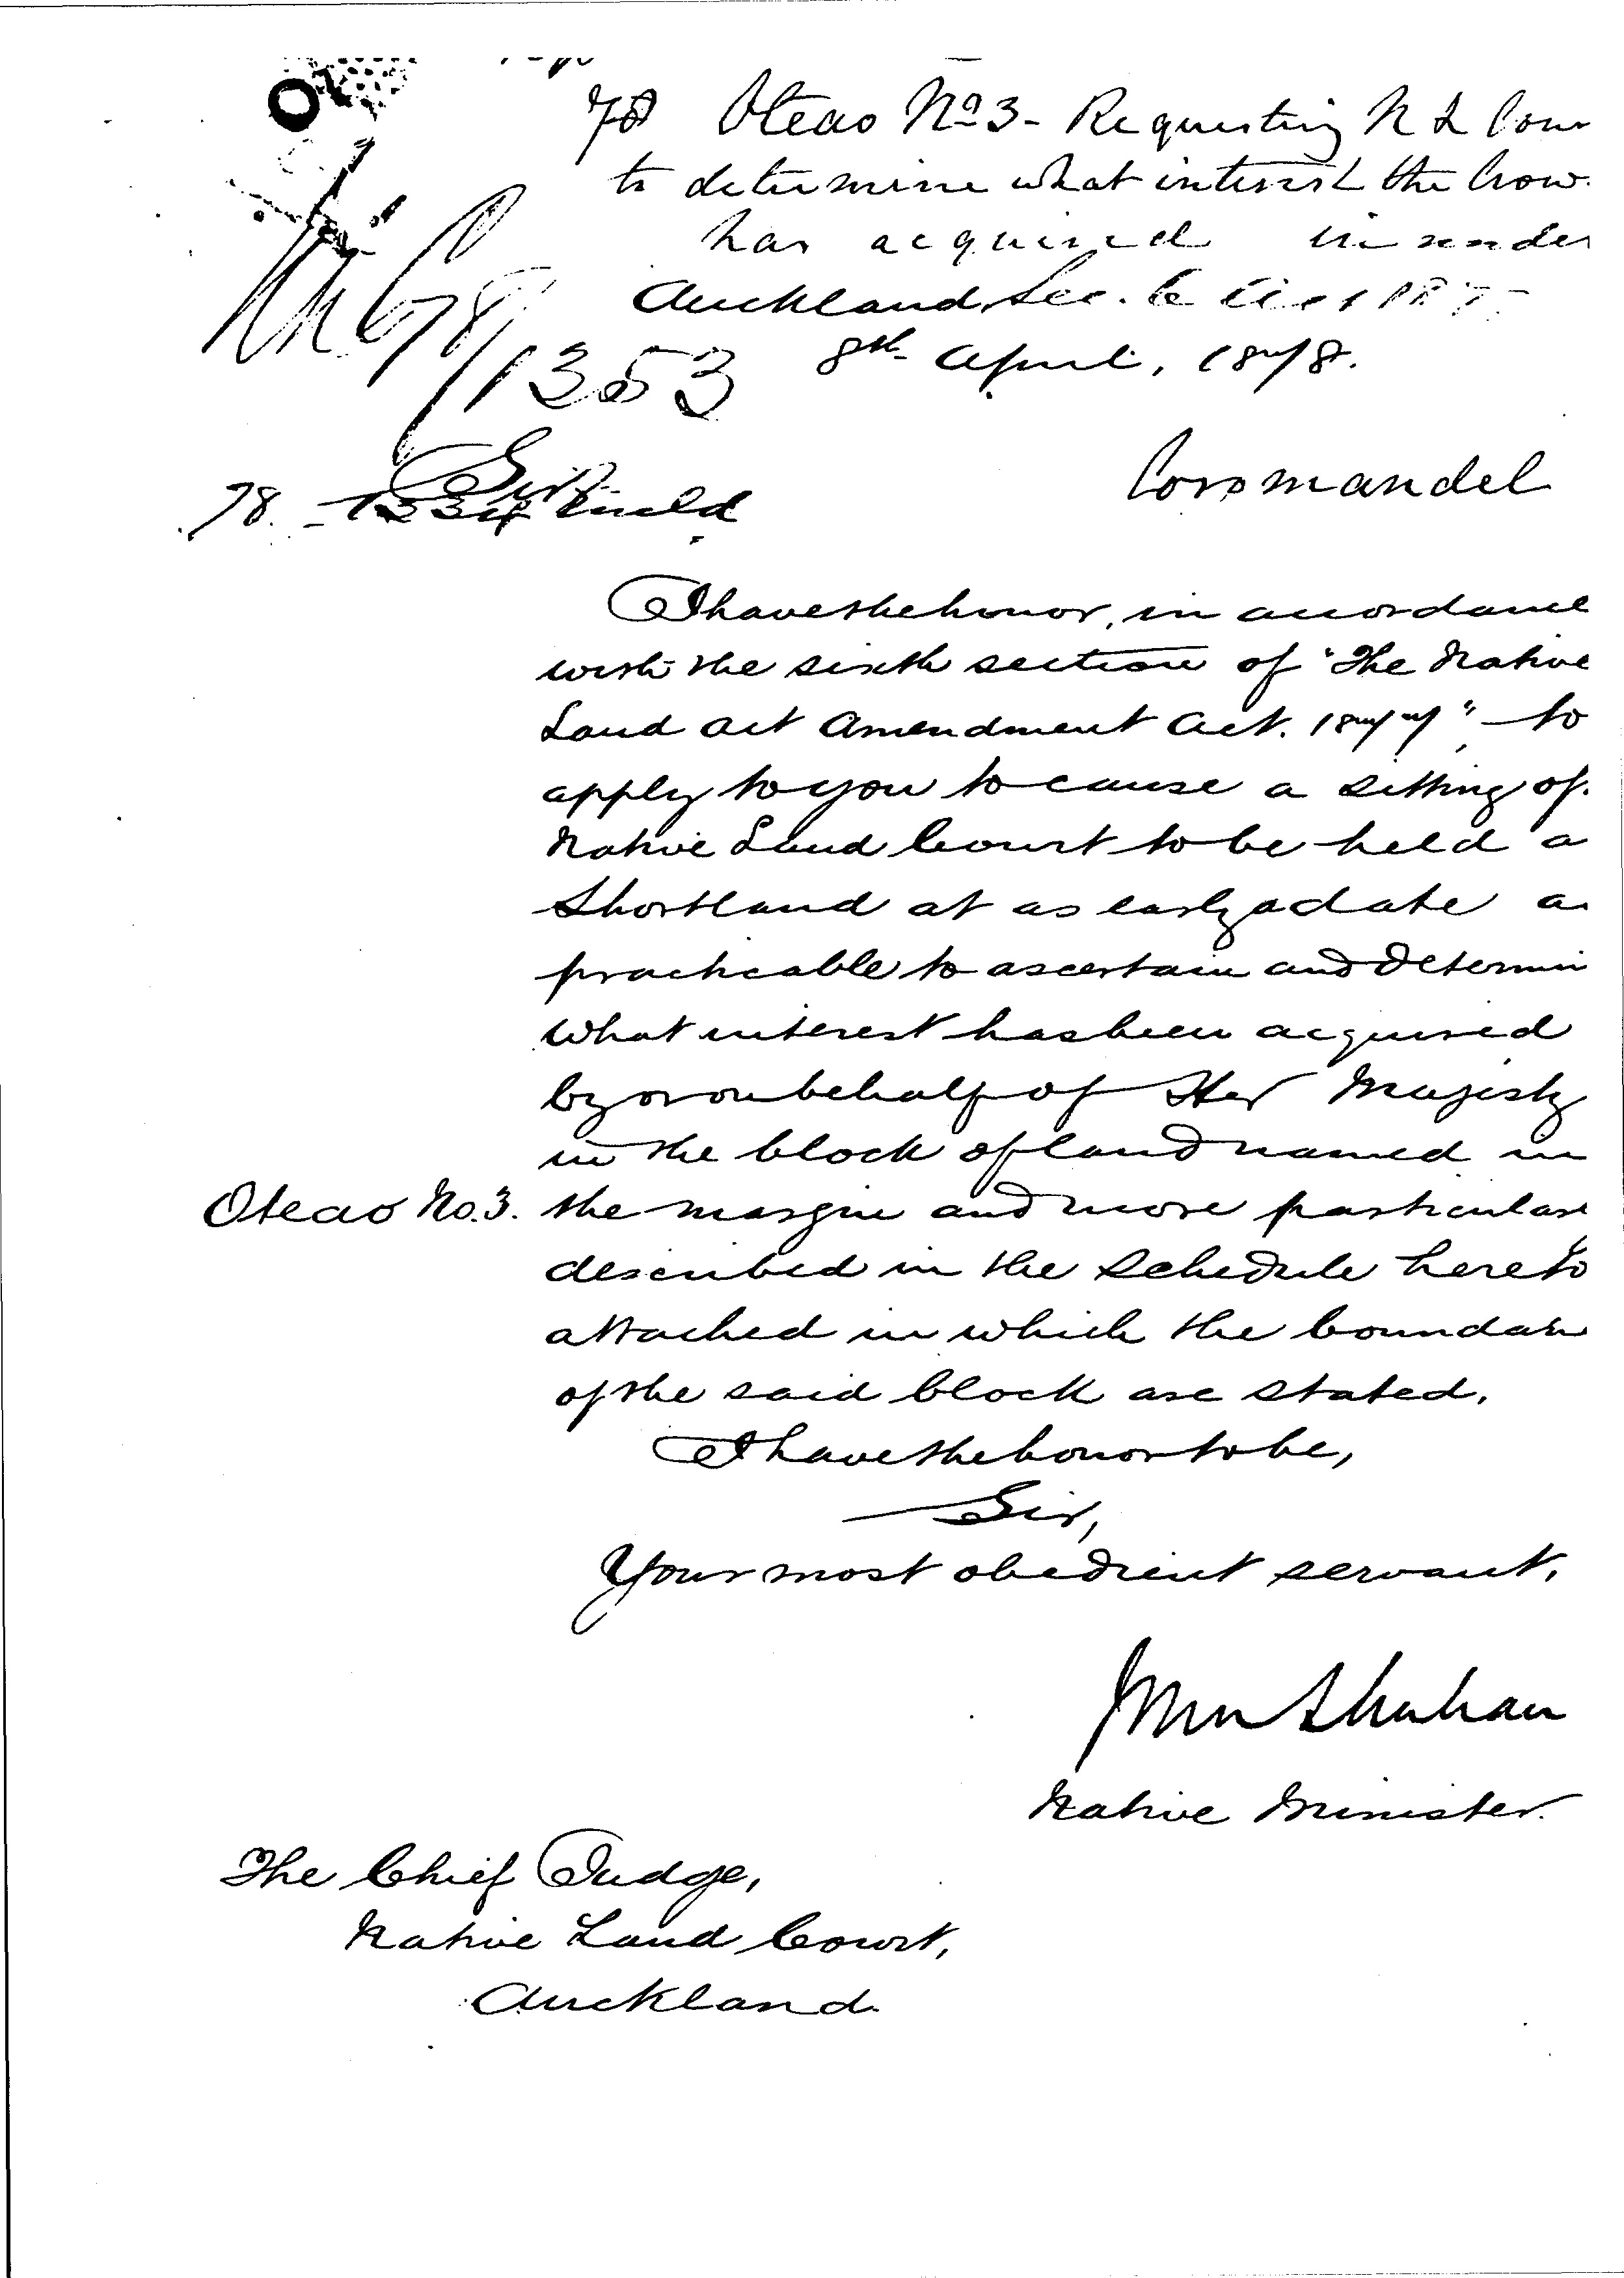 78 Oteao No 3 - Requesting N L Cour
to determine what interest the Crow
has acquired in under
Auckland, Sec. 6
8th April, 1878.
1353
Coromandel
Sir,
78.
I have the honor, in accordance
with the sixth section of "The Native
Land Act Amendment Act. 1877," to
apply to you to cause a sitting of
Native Land Court to be held a
Shortland at as early a date a
practicable to ascertain and determin
what interest has been acquired
by or on behalf of Her Majesty
in the block of land named in
Oteao No. 3. the margin and more particular
described in the Schedule hereto
attached in which the boundar
of the said block are stated.
I have the honor to be,
Sir,
Your most obedient servant,
Native Minister.
The Chief Judge,
Native Land Court,
Auckland.